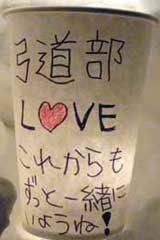 弓道部
L♡VE
これからも
ずっと一緒に
いようね!